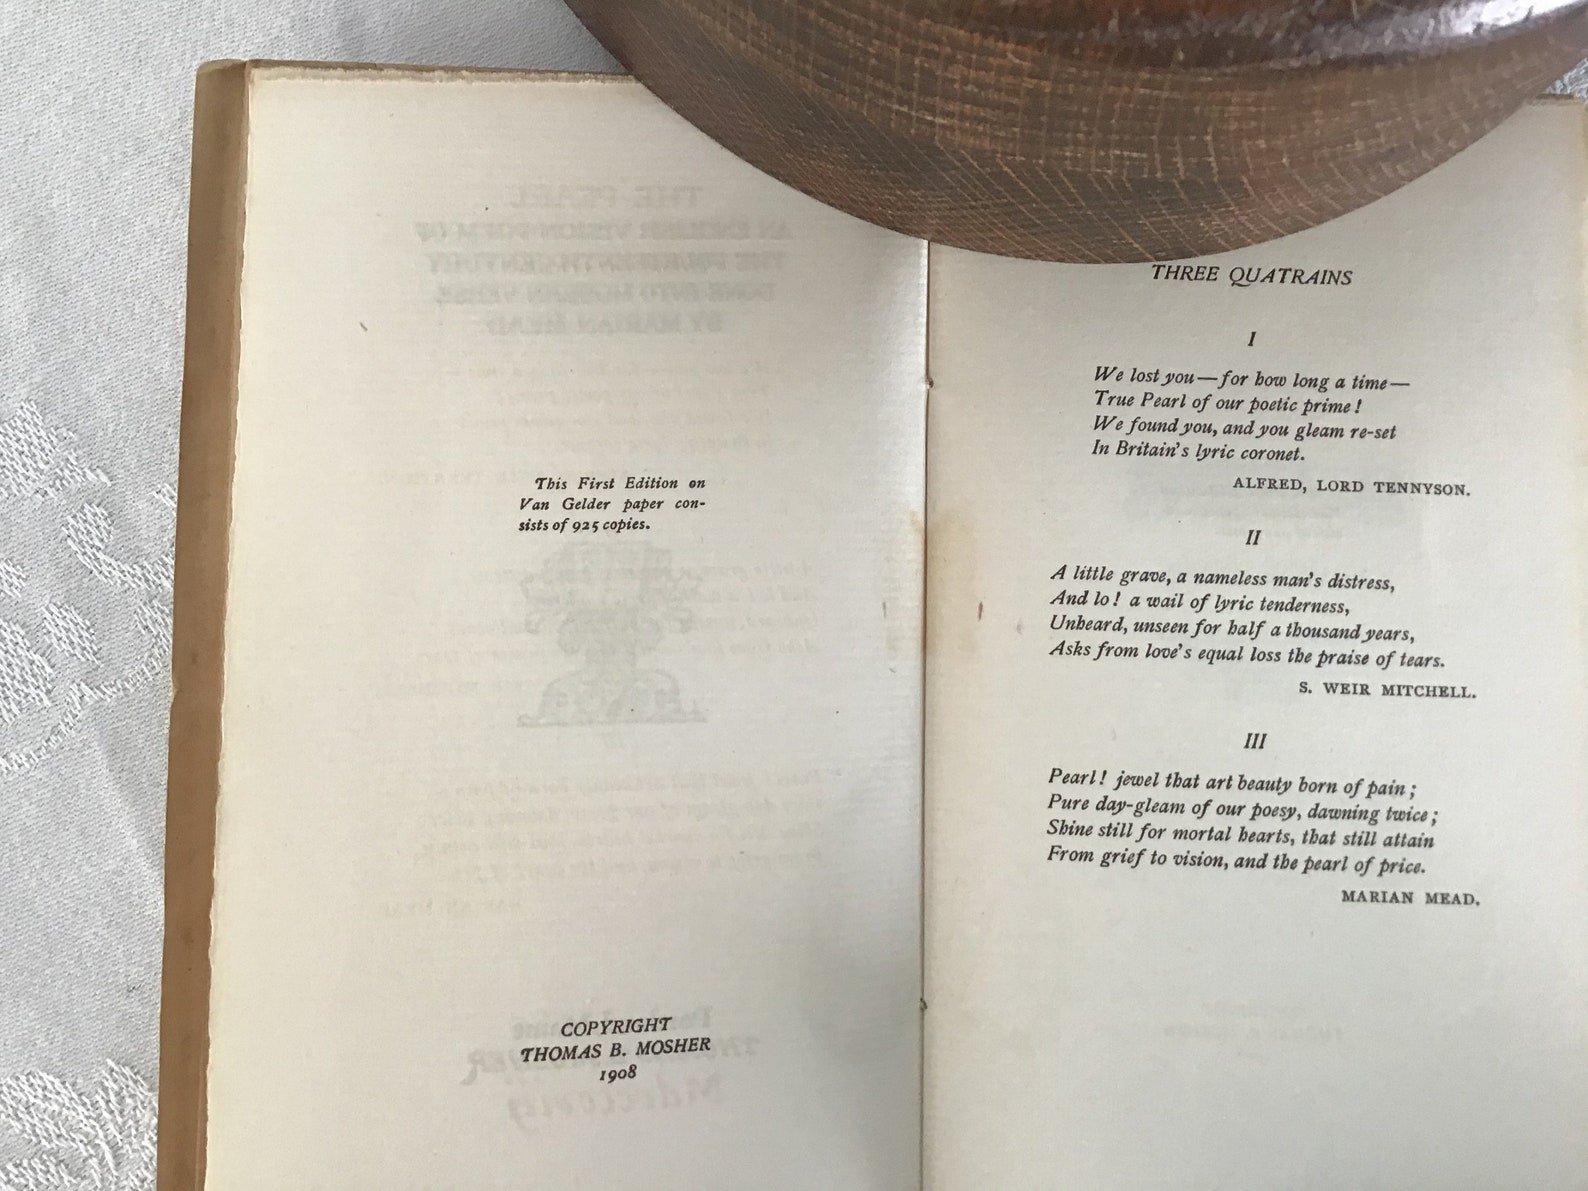 This First Edition on
Van Gelder paper con-
sists of 925 copies.
COPYRIGHT
THOMAS B. MOSHER
1908
THREE QUATRAINS
I
We lost you—for how long a time—
True Pearl of our poetic prime!
We found you, and you gleam re-set
In Britain's lyric coronet.
ALFRED, LORD TENNYSON.
II
A little grave, a nameless man's distress,
And lo! a wail of lyric tenderness,
Unheard, unseen for half a thousand years,
Asks from love's equal loss the praise of tears.
S. WEIR MITCHELL.
III
Pearl! jewel that art beauty born of pain;
Pure day-gleam of our poesy, dawning twice;
Shine still for mortal hearts, that still attain
From grief to vision, and the pearl of price.
MARIAN MEAD.